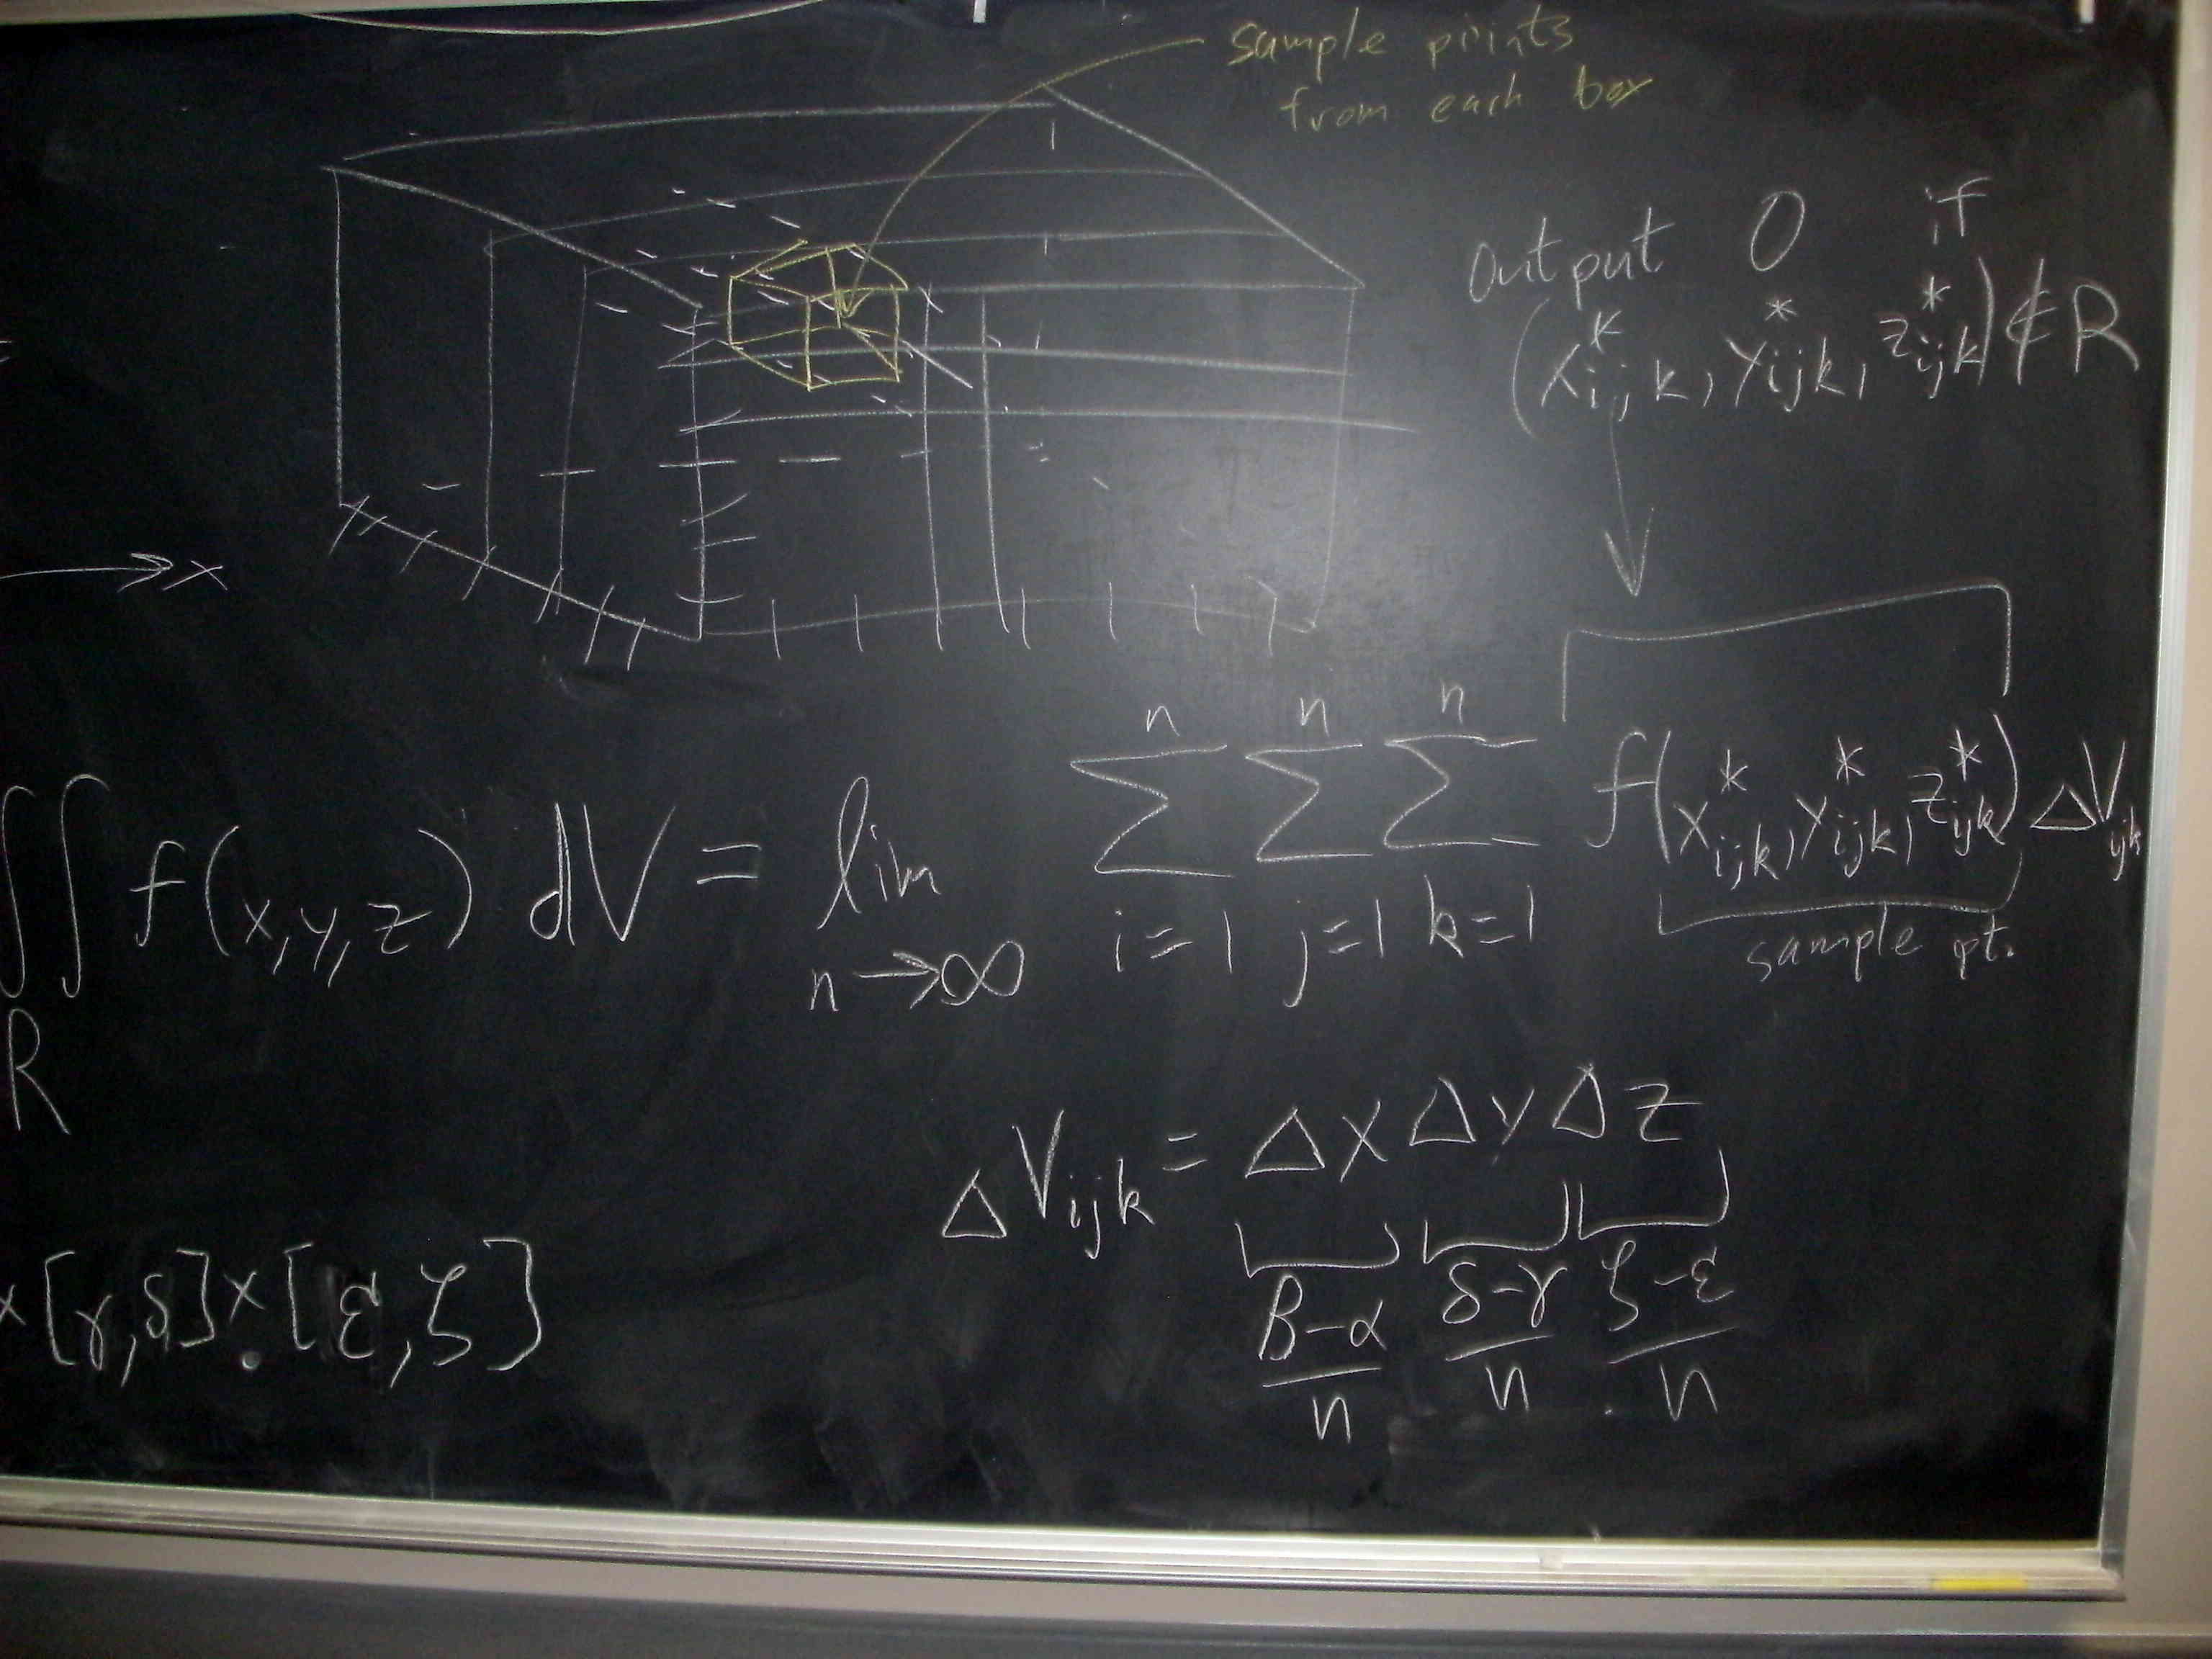 sample points
from each box
output 0 if
(x*ijk, y*ijk, z*ijk) ∉ R
→ x
∫∫ f(x,y,z) dV = lim n→∞ ∑ⁿi=1 ∑ⁿj=1 ∑ⁿk=1 f(x*ijk, y*ijk, z*ijk) ΔVijk
R
sample pt.
ΔVijk = Δx Δy Δz
β-α/n δ-γ/n ζ-ε/n
×[γ,δ]×[ε,ζ]